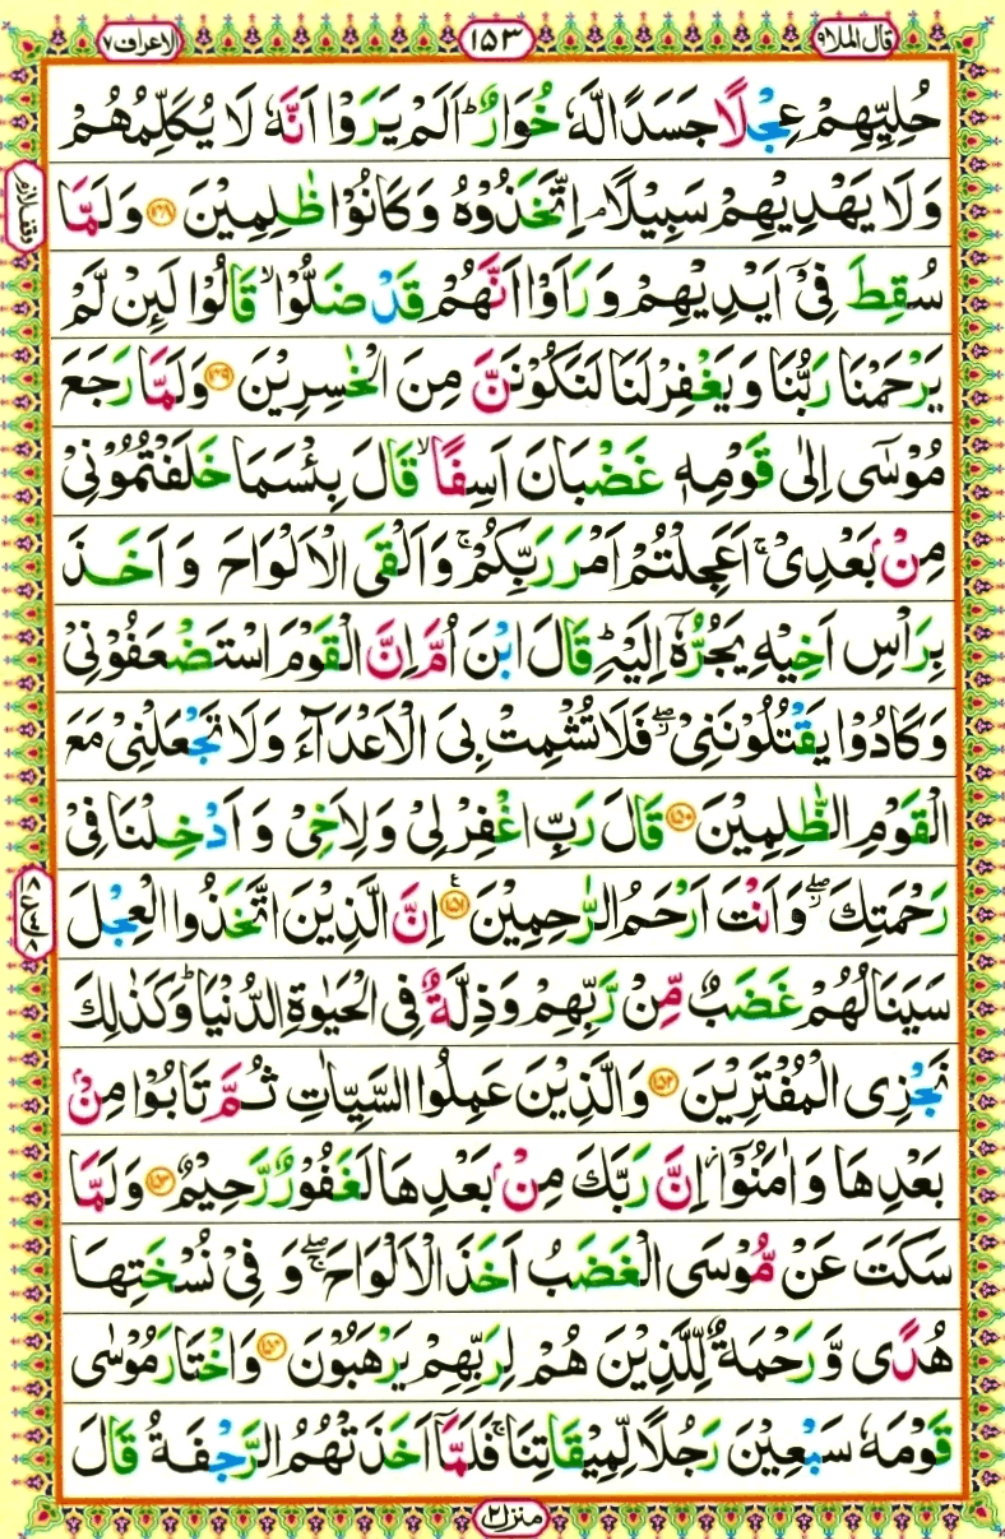 قال الملا ۹
۱۵۳
الاعراف ۷
حُلِیِّهِمْ عِجْلًا جَسَدًا لَّهٗ خُوَارٌ ؕ اَلَمْ یَرَوْا اَنَّهٗ لَا یُكَلِّمُهُمْ
وَلَا یَهْدِیْهِمْ سَبِیْلًا ۘ اِتَّخَذُوْهُ وَكَانُوْا ظٰلِمِیْنَ ۝۱۴۸ وَلَمَّا
سُقِطَ فِیْۤ اَیْدِیْهِمْ وَرَاَوْا اَنَّهُمْ قَدْ ضَلُّوْا ۙ قَالُوْا لَىِٕنْ لَّمْ
یَرْحَمْنَا رَبُّنَا وَیَغْفِرْ لَنَا لَنَكُوْنَنَّ مِنَ الْخٰسِرِیْنَ ۝۱۴۹ وَلَمَّا رَجَعَ
مُوْسٰۤی اِلٰی قَوْمِهٖ غَضْبَانَ اَسِفًا ۙ قَالَ بِئْسَمَا خَلَفْتُمُوْنِیْ
مِنْۢ بَعْدِیْ ۚ اَعَجِلْتُمْ اَمْرَ رَبِّكُمْ ۚ وَاَلْقَی الْاَلْوَاحَ وَ اَخَذَ
بِرَاْسِ اَخِیْهِ یَجُرُّهٗۤ اِلَیْهِ ؕ قَالَ ابْنَ اُمَّ اِنَّ الْقَوْمَ اسْتَضْعَفُوْنِیْ
وَكَادُوْا یَقْتُلُوْنَنِیْ ۖ٘ فَلَا تُشْمِتْ بِیَ الْاَعْدَآءَ وَلَا تَجْعَلْنِیْ مَعَ
الْقَوْمِ الظّٰلِمِیْنَ ۝۱۵۰ قَالَ رَبِّ اغْفِرْ لِیْ وَلِاَخِیْ وَ اَدْخِلْنَا فِیْ
رَحْمَتِكَ ۖ٘ وَاَنْتَ اَرْحَمُ الرّٰحِمِیْنَ ۝۱۵۱ ع اِنَّ الَّذِیْنَ اتَّخَذُوا الْعِجْلَ
سَیَنَالُهُمْ غَضَبٌ مِّنْ رَّبِّهِمْ وَذِلَّةٌ فِی الْحَیٰوةِ الدُّنْیَا ؕ وَكَذٰلِكَ
نَجْزِی الْمُفْتَرِیْنَ ۝۱۵۲ وَالَّذِیْنَ عَمِلُوا السَّیِّاٰتِ ثُمَّ تَابُوْا مِنْۢ
بَعْدِهَا وَ اٰمَنُوْۤا ؗ اِنَّ رَبَّكَ مِنْۢ بَعْدِهَا لَغَفُوْرٌ رَّحِیْمٌ ۝۱۵۳ وَلَمَّا
سَكَتَ عَنْ مُّوْسَی الْغَضَبُ اَخَذَ الْاَلْوَاحَ ۖۚ وَ فِیْ نُسْخَتِهَا
هُدًی وَّرَحْمَةٌ لِّلَّذِیْنَ هُمْ لِرَبِّهِمْ یَرْهَبُوْنَ ۝۱۵۴ وَاخْتَارَ مُوْسٰی
قَوْمَهٗ سَبْعِیْنَ رَجُلًا لِّمِیْقَاتِنَا ۚ فَلَمَّاۤ اَخَذَتْهُمُ الرَّجْفَةُ قَالَ
منزل۲
وقف لازم